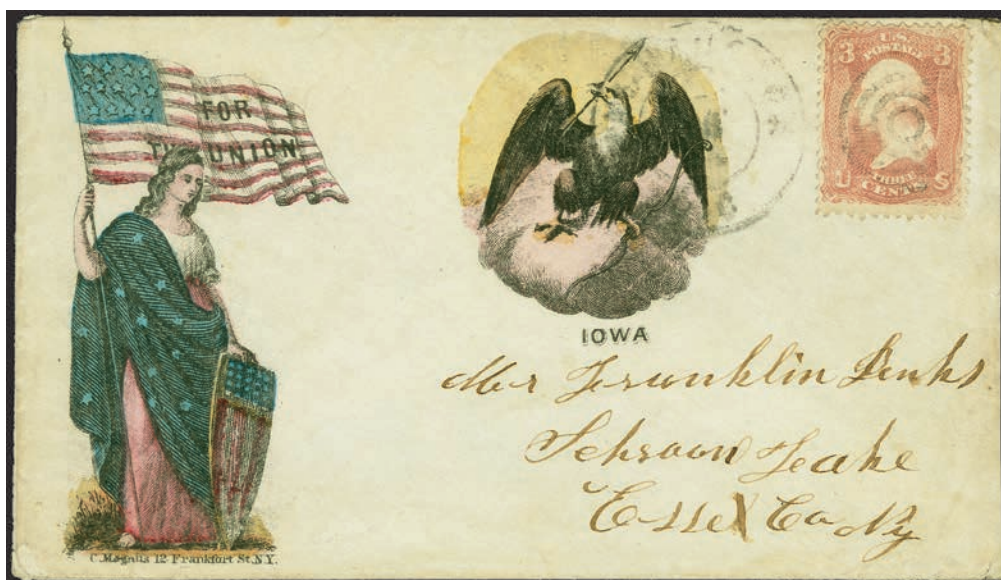 FOR
THE UNION
3 U.S. 3
POSTAGE
THREE
U CENTS S
IOWA
Mr Franklin Jenks
Schroon Lake
Essex Co Ny
C. Magnus 12 Frankfort St. N.Y.